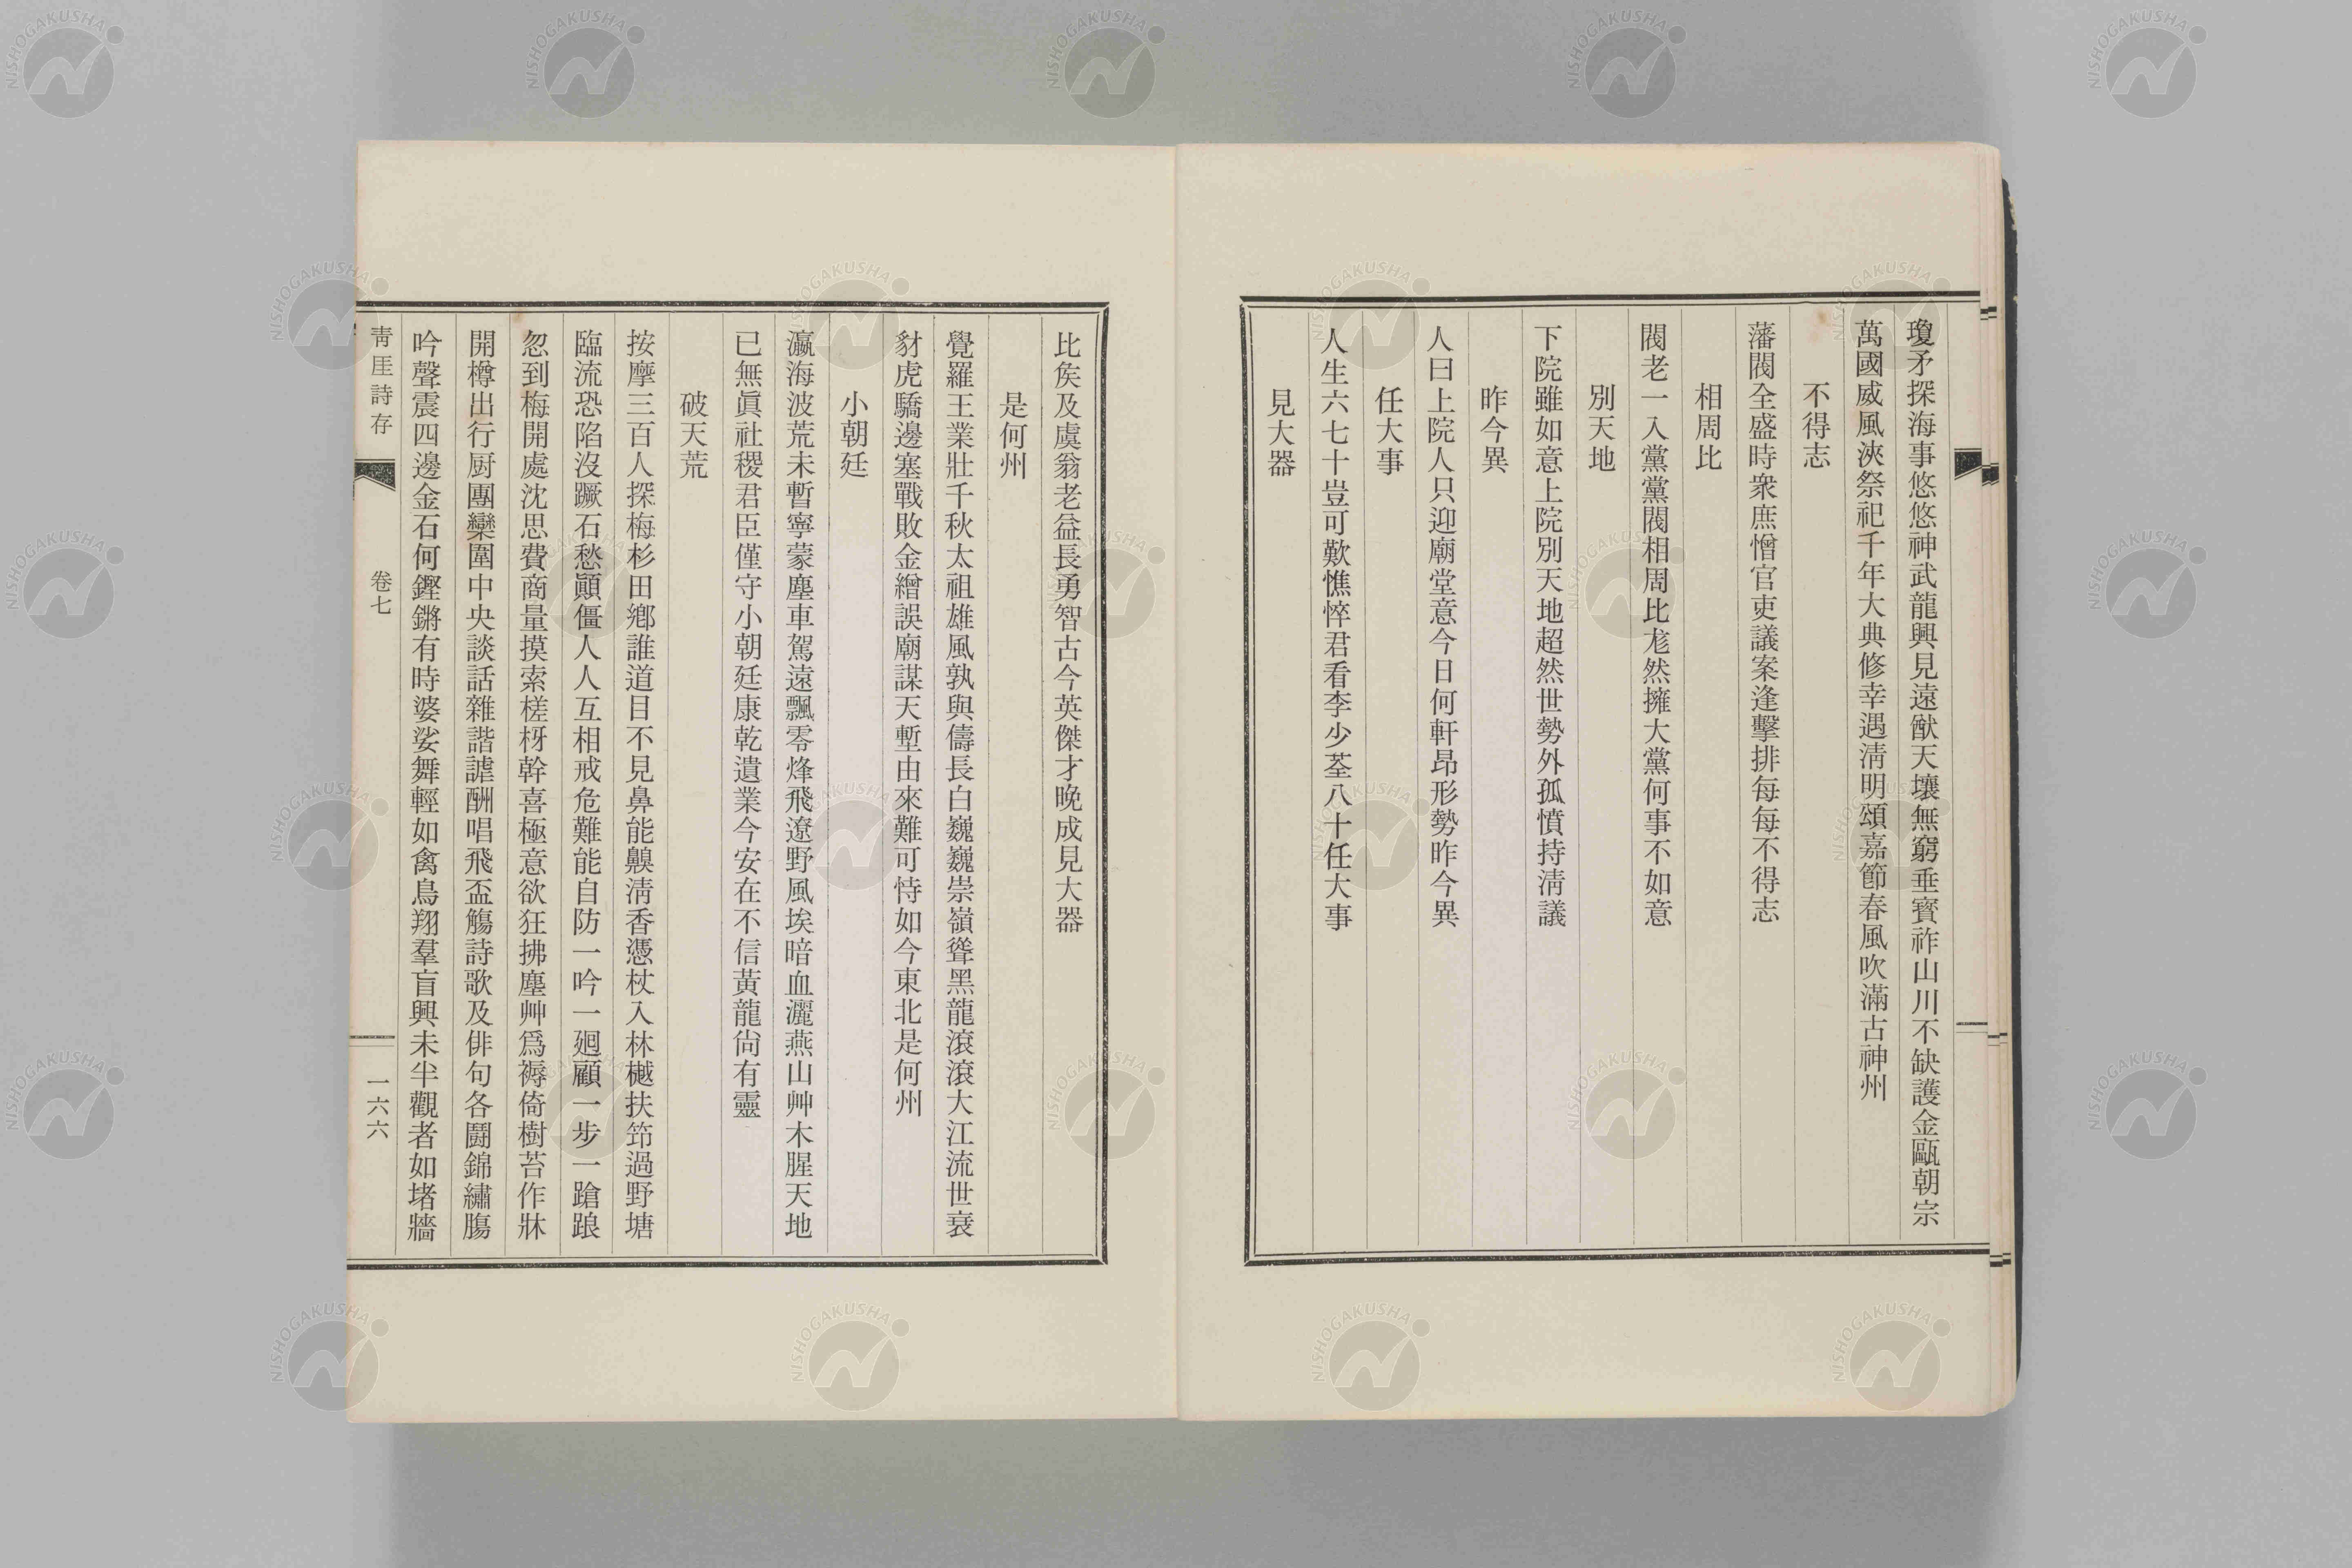 瓊矛探海事悠悠神武龍興見遠猷天壤無窮垂寶祚山川不缺護金甌朝宗
萬國威風浹祭祀千年大典修幸遇淸明頌嘉節春風吹滿古神州
不得志
藩閥全盛時衆庶憎官吏議案逢擊排每每不得志
相周比
閥老一入黨黨閥相周比尨然擁大黨何事不如意
別天地
下院雖如意上院別天地超然世勢外孤憤持淸議
昨今異
人曰上院人只迎廟堂意今日何軒昂形勢昨今異
任大事
人生六七十豈可歎憔悴君看李少荃八十任大事
見大器
比矦及虞翁老益長勇智古今英傑才晩成見大器
是何州
覺羅王業壯千秋太祖雄風孰與儔長白巍巍崇嶺聳黑龍滾滾大江流世衰
豺虎驕邊塞戰敗金繒誤廟謀天塹由來難可恃如今東北是何州
小朝廷
瀛海波荒未暫寧蒙塵車駕遠飄零烽飛遼野風埃暗血灑燕山艸木腥天地
已無眞社稷君臣僅守小朝廷康乾遺業今安在不信黃龍尙有靈
破天荒
按摩三百人探梅杉田鄕誰道目不見鼻能齅淸香憑杖入林樾扶筇過野塘
臨流恐陷沒蹶石愁顚僵人人互相戒危難能自防一吟一廻顧一步一蹌踉
忽到梅開處沈思費商量摸索槎枒幹喜極意欲狂拂塵艸爲褥倚樹苔作牀
開樽出行厨團欒圍中央談話雜諧謔酬唱飛盃觴詩歌及俳句各鬪錦繡膓
吟聲震四邊金石何鏗鏘有時婆娑舞輕如禽鳥翔羣盲興未半觀者如堵牆
靑厓詩存
卷七
一六六
NISHOGAKUSHA